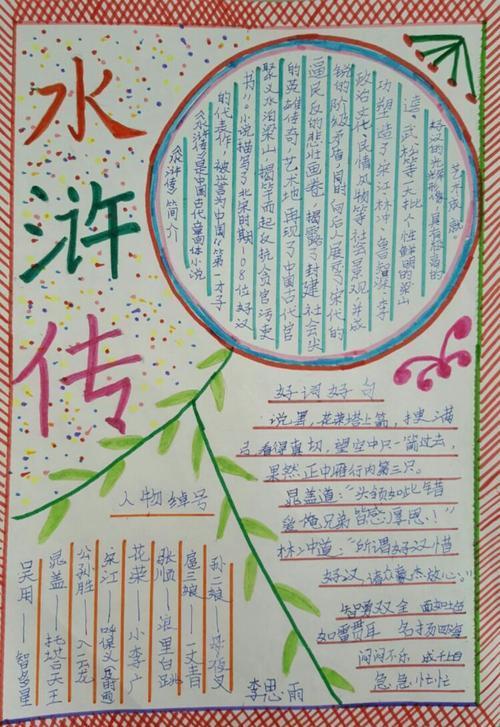 水浒传
《水浒传》简介
《水浒传》是中国古代章回体小说
的代表作，被誉为中国“第一才子
书”。小说描写了北宋时期108位好汉
聚义水泊梁山，揭竿而起反抗贪官污吏
的英雄传奇，艺术地再现了中国古代官
逼民反的悲壮画卷，揭露了封建社会尖
锐的阶级矛盾，同时向后人展示了宋代的
政治文化、民情风物等社会景观，并成
功塑造了宋江、林冲、鲁智深、李
逵、武松等一大批个性鲜明的梁山
好汉的光辉形像，具有较高的
艺术成就。
好词好句
说罢，花荣搭上箭，拽满
弓，看得真切，望空中只一箭过去，
果然正中雁行内第三只。
晁盖道：“头领如此错
爱，俺兄弟皆感厚恩！”
林冲道：“所谓好汉惜
好汉，请众豪杰放心。”
智勇双全 面如土色
如雷贯耳 名扬四海
闷闷不乐 成千上百
急急忙忙
人物绰号
孙二娘——母夜叉
扈三娘——一丈青
张顺——浪里白跳
花荣——小李广
宋江——呼保义(及时雨)
公孙胜——入云龙
晁盖——托塔天王
吴用——智多星
李思雨